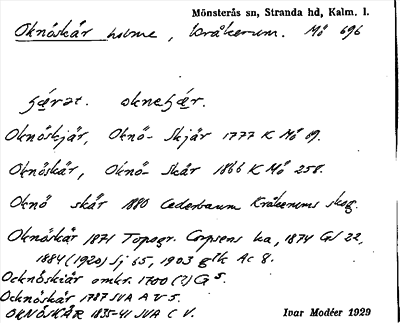 Mönsterås sn, Stranda hd, Kalm. l.
Oknöskär holme, Kråkerum. Mö 696
hä̱rət. oknehä̱r.
Oknöskjär, Oknö- Skjär 1777 K Mö 89.
Oknöskär, Oknö- Skär 1866 K Mö 258.
Oknö skär 1880 Cederbaum Kråkerums skog.
Oknöskär 1871 Topogr. Corpsens ka, 1874 GS 22,
1884 (1920) Sj 65, 1903 glk Ac 8.
Ocknöskiär omkr. 1700 (?) G 5.
Ocknöskär 1787 SVA A V 5.
OKNÖSKÄR 1835-41 SVA C V.
Ivar Modéer 1929